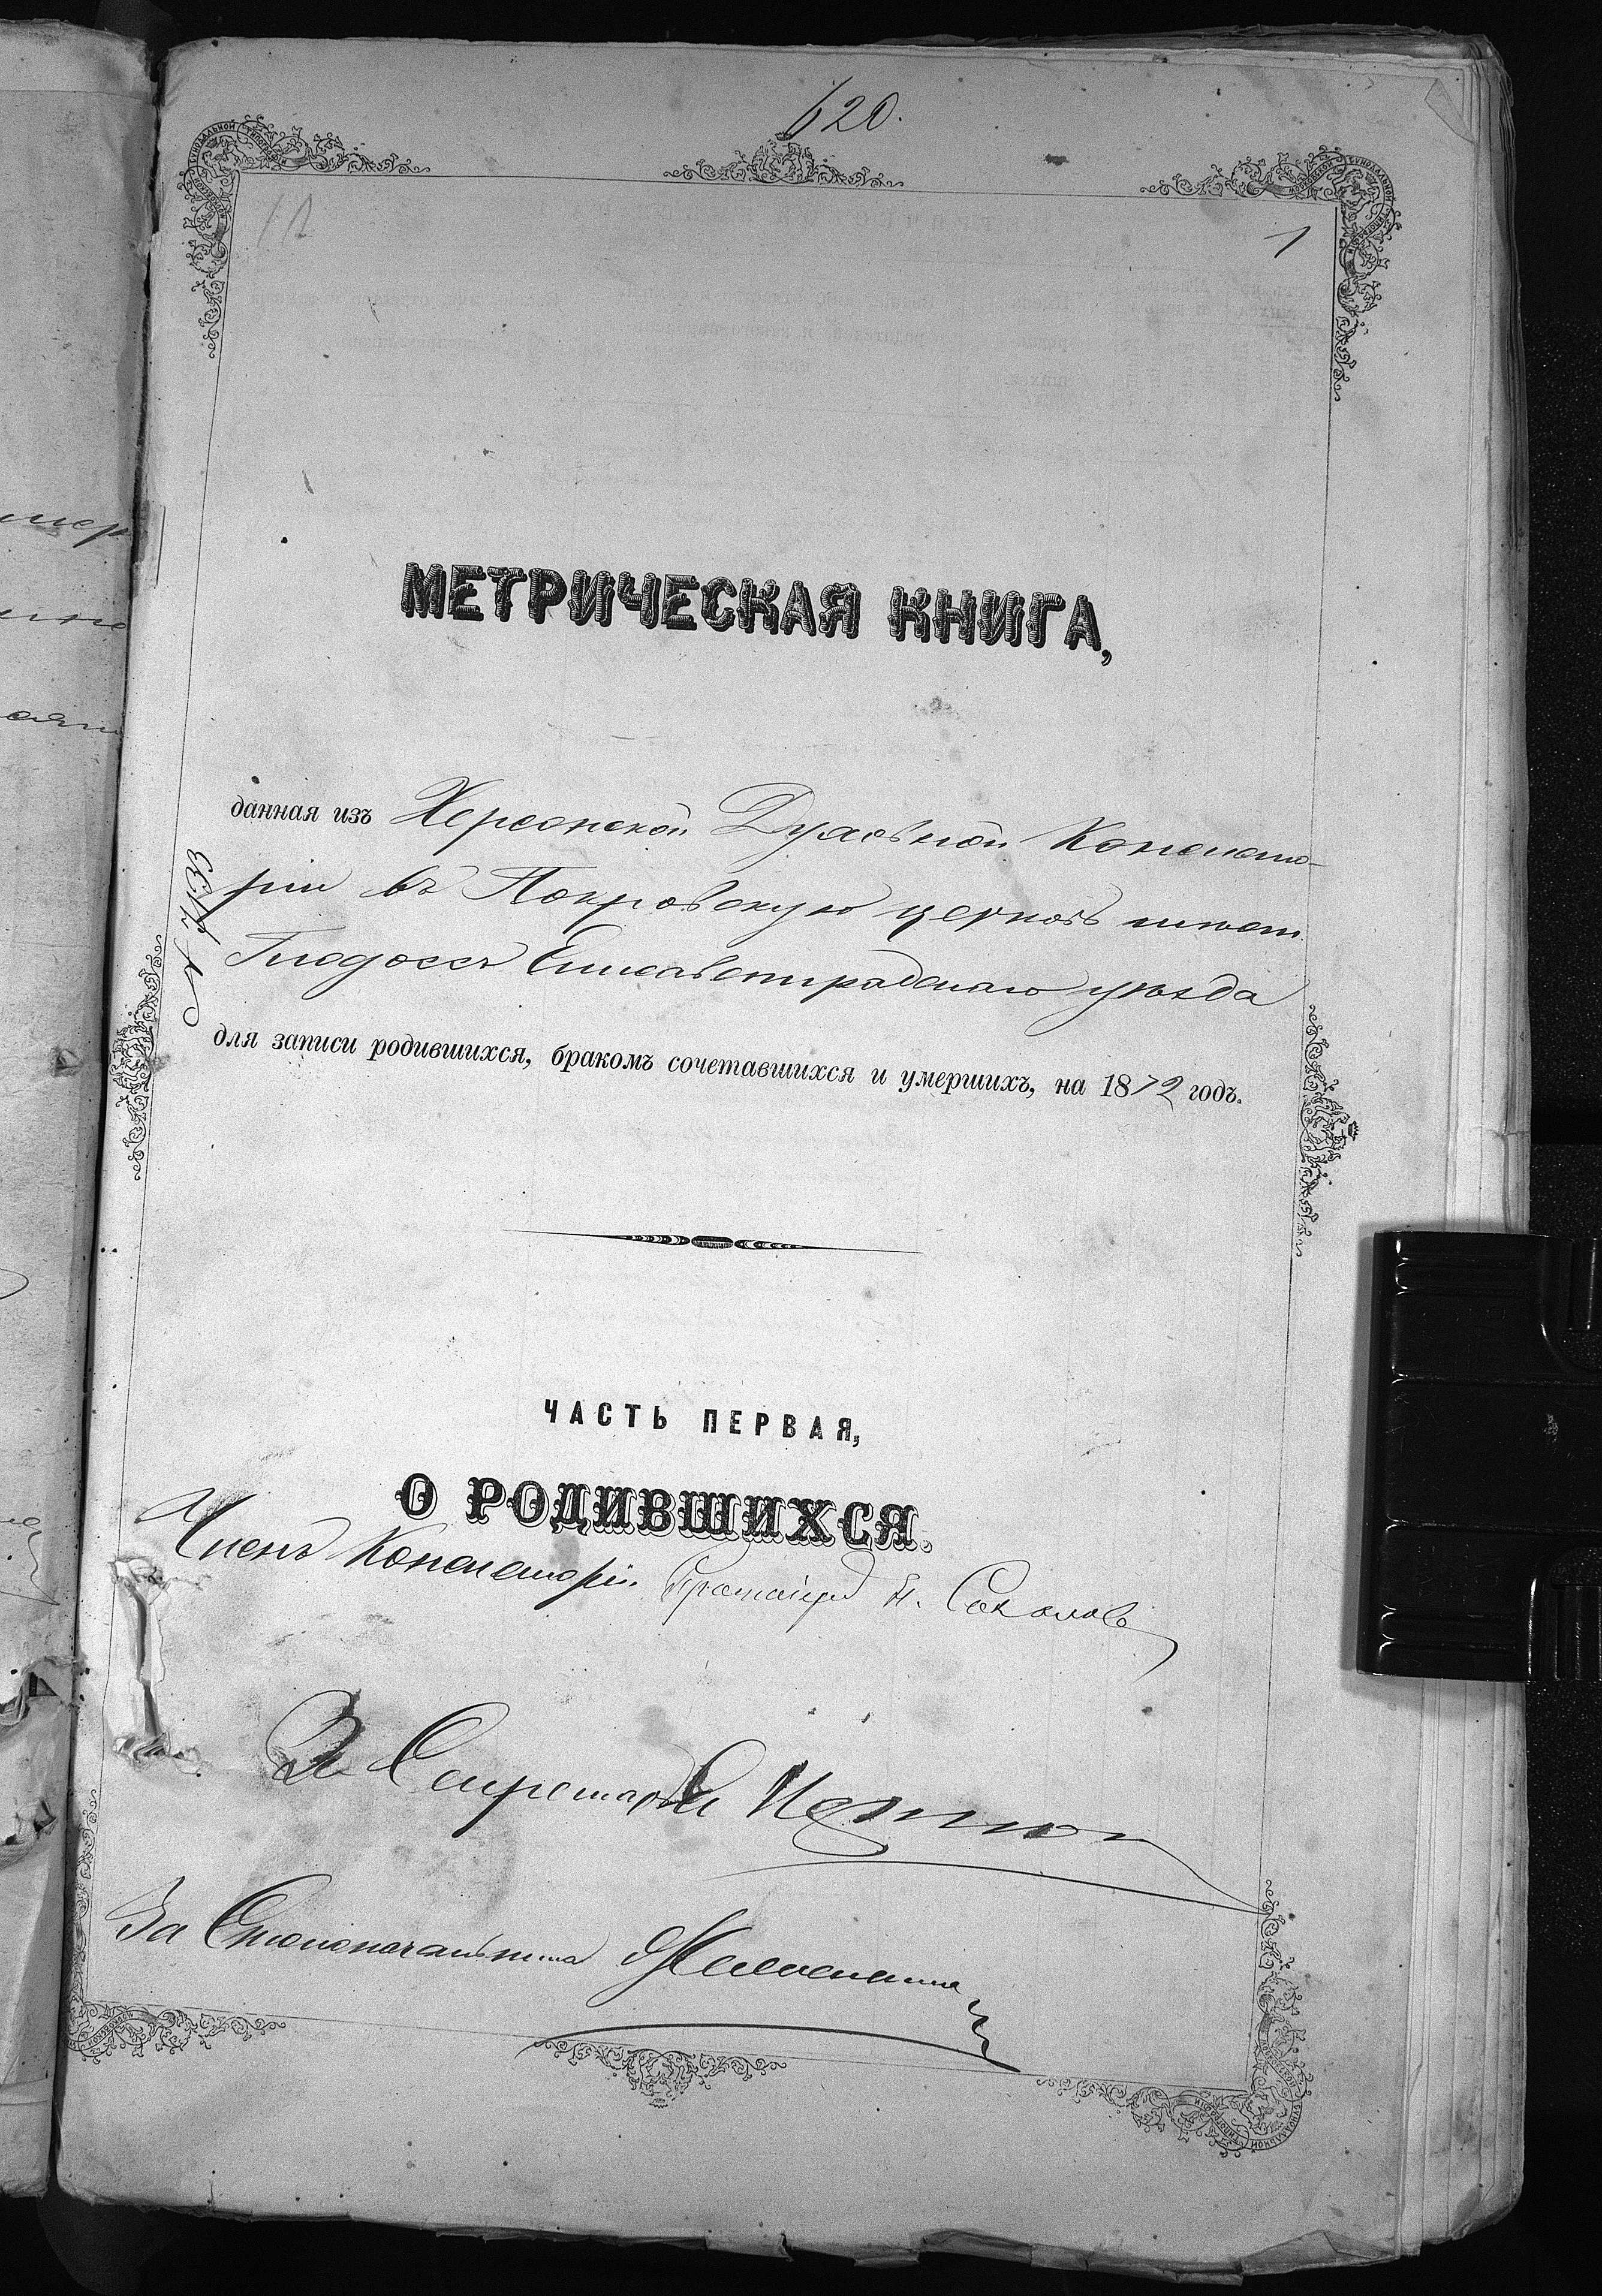 620.
1
МЕТРИЧЕСКАЯ КНИГА,
данная изъ Херсонской Духовной Консисто-
ріи въ Покровскую церковь мѣст.
Глодоссъ Елисаветградскаго уѣзда
для записи родившихся, бракомъ сочетавшихся и умершихъ, на 1872 годъ.
ЧАСТЬ ПЕРВАЯ,
О РОДИВШИХСЯ.
Членъ Консисторіи Протоіерей П. Соколовъ
За Секретаря
За Столоначальника